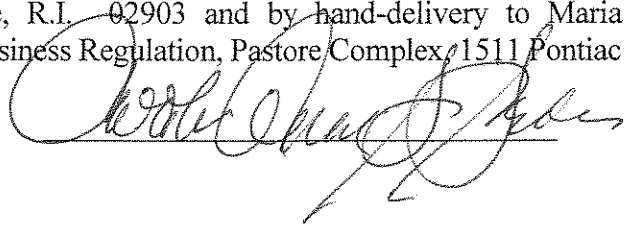 e, R.I. 02903 and by hand-delivery to Maria
siness Regulation, Pastore Complex, 1511 Pontiac